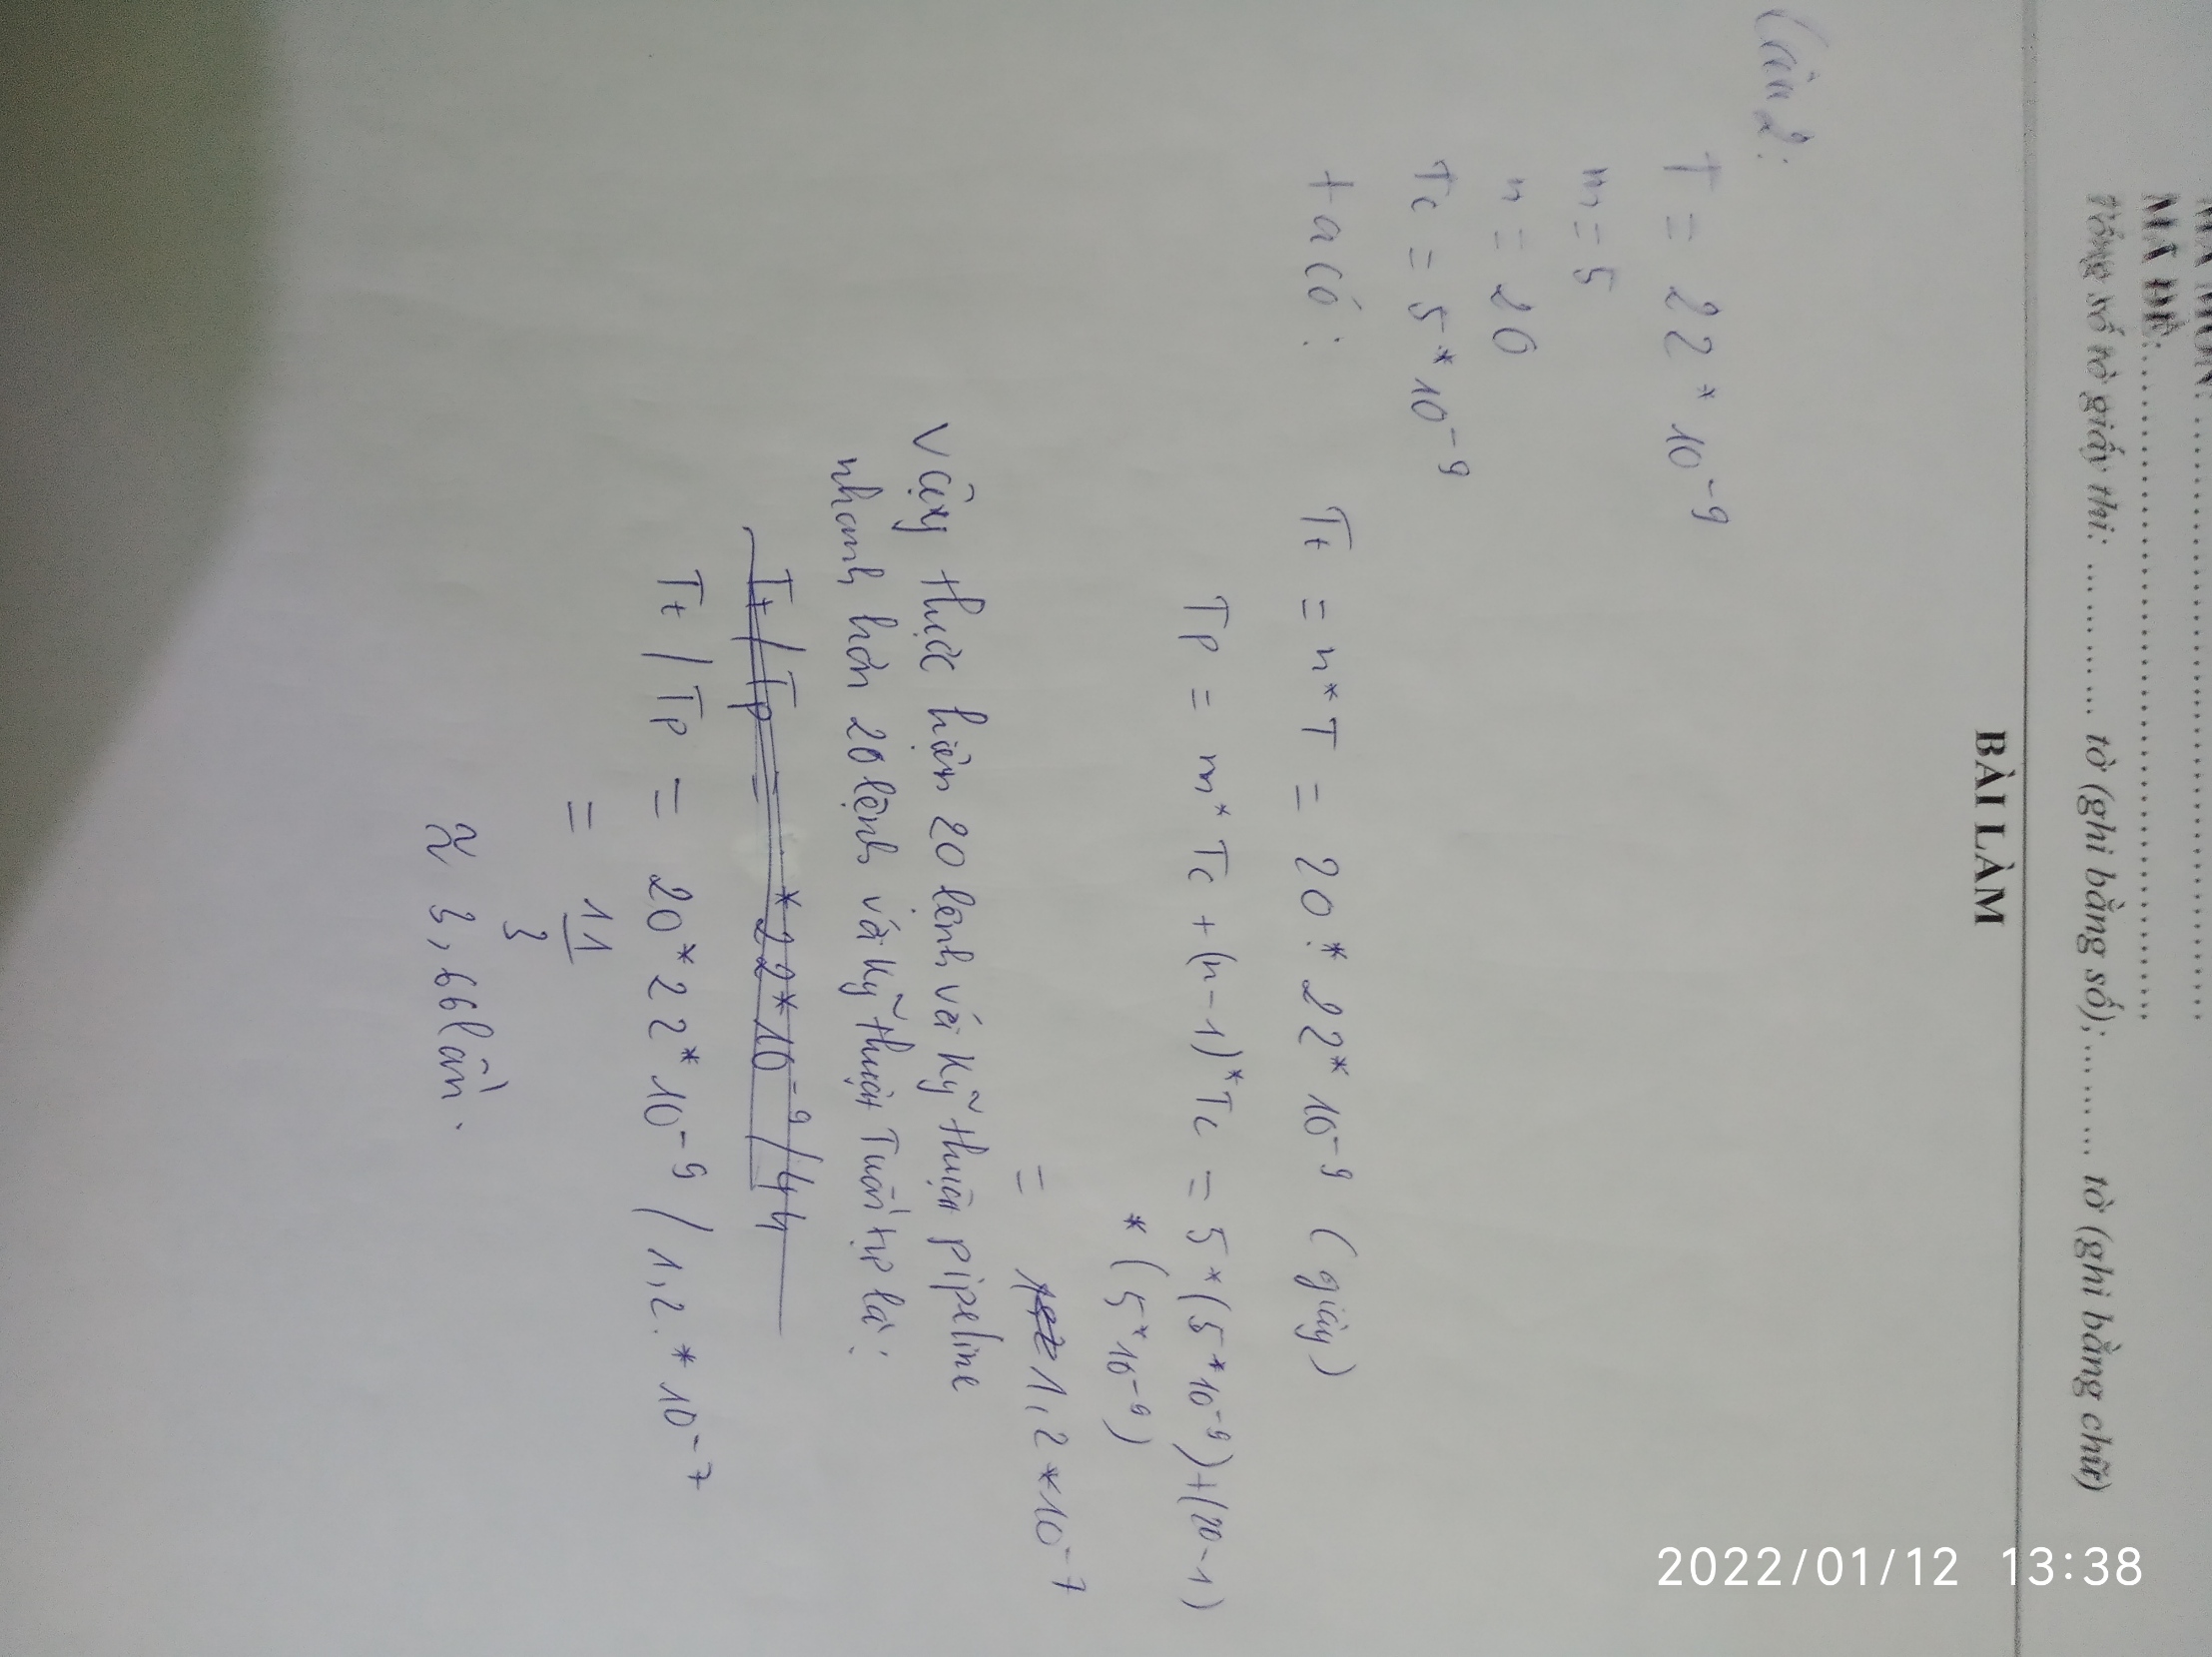 MÃ MÔN: ........................................................
MÃ ĐỀ:........................................................
Tổng số tờ giấy thi: ............ tờ (ghi bằng số); ......... tờ (ghi bằng chữ)
BÀI LÀM
2022/01/12 13:38
Câu 2:
T = 22 * 10⁻⁹
m = 5
n = 20
Tc = 5 * 10⁻⁹
ta có: Tt = n * T = 20 * 22 * 10⁻⁹ (giây)
Tp = m * Tc + (n-1) * Tc = 5 * (5 * 10⁻⁹) + (20-1)
* (5 * 10⁻⁹)
= 1,2 * 10⁻⁷
vậy thực hiện 20 lệnh với kỹ thuật pipeline
nhanh hơn 20 lệnh với kỹ thuật Tuần tự là:
Tt / Tp = * 22 * 10⁻⁹ / 44
Tt / Tp = 20 * 22 * 10⁻⁹ / 1,2 * 10⁻⁷
= 11/3
≈ 3,66 lần.